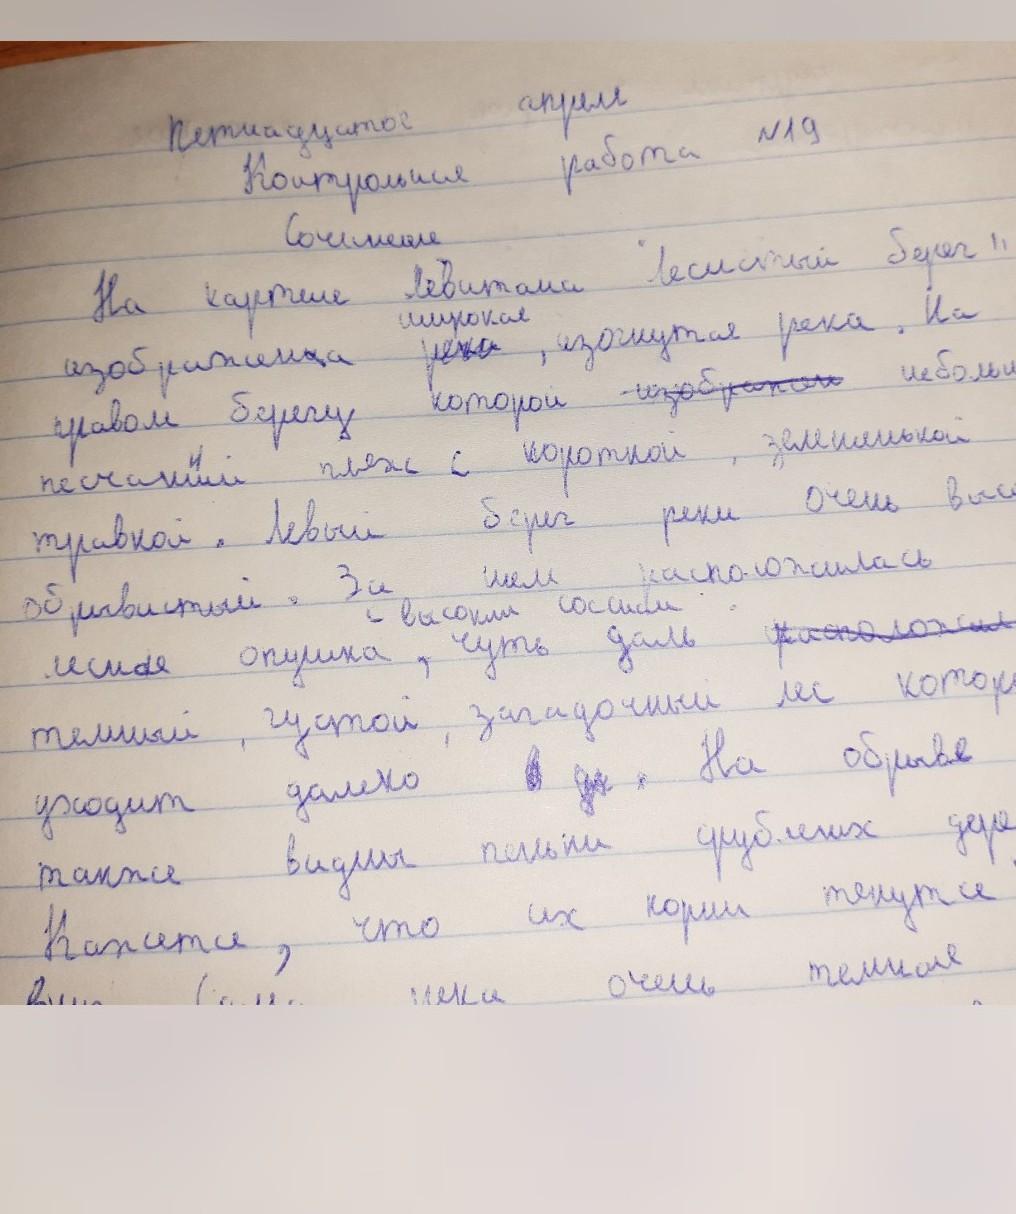 Петнадцатое апреля
Контрольная работа №19
Сочинение
На картине Левитана "Лесистый берег"
широкая
изображена река, изогнутая река. На
правом берегу которой изображен небольш
песчаный пляж с короткой, зелененькой
травкой. Левый берег реки очень высо
обрывистый. За ним расположилась
с высокими соснами
лесная опушка, чуть даль расположил
темный, густой, загадочный лес которы
уходит далеко в
. На обрыве
также видны пеньки срубленых дере
Кажется, что их корни тянутся
Сама река очень темная